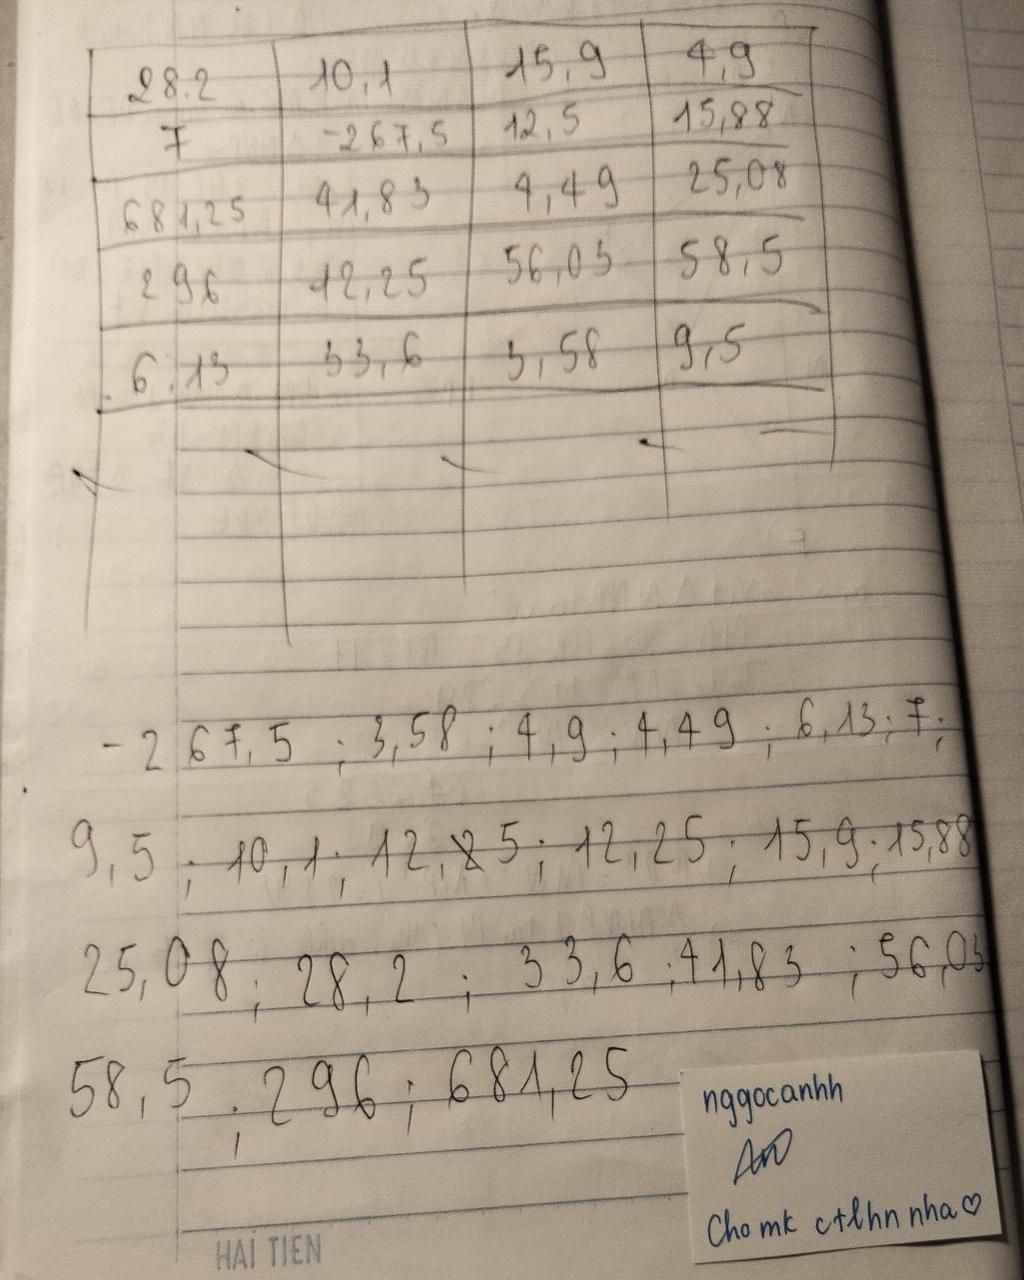 28.2 10,1 15,9 4,9
7 -267,5 12,5 15,88
681,25 41,83 4,49 25,08
296 12,25 56,03 58,5
6.13 33,6 3,58 9,5
-267,5 ; 3,58 ; 4,9 ; 4,49 ; 6,13 ; 7 ;
9,5 ; 10,1 ; 12,25 ; 12,25 ; 15,9 ; 15,88
25,08 ; 28,2 ; 33,6 ; 41,83 ; 56,03
58,5 ; 296 ; 681,25
nggocanhh
Cho mk ctlhn nha♡
HAI TIEN